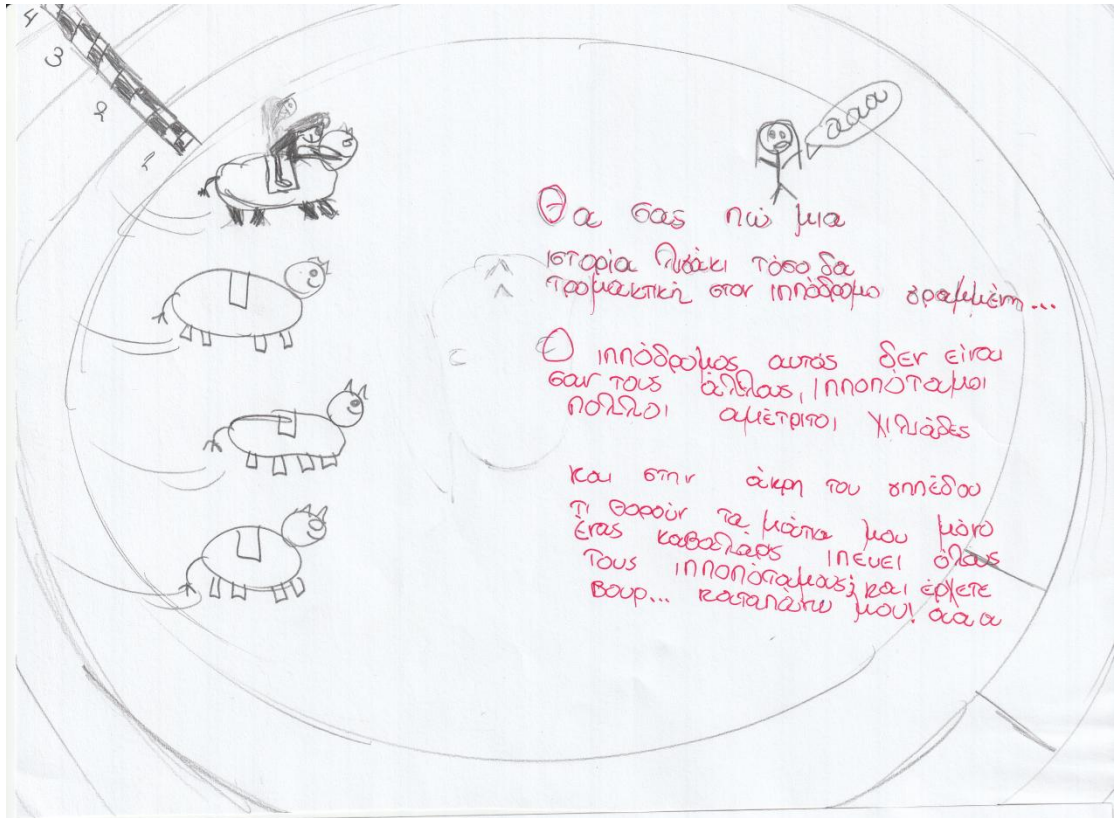 4
3
2
1
ααα
Θα σας πώ μια
ιστορία λιγάκι τόσο δα
τρομακτική στον ιππόδρομο γραμμένη...
Ο ιππόδρομος αυτός δεν είναι
σαν τους άλλους, Ιπποπόταμοι
πολλοί αμέτριτοι χιλιάδες
και στην άκρη του γηπέδου
τι θορούν τα μάτια μου μόνο
ένας καβαλάρης ιπεύει όλους
τους ιπποπόταμους; και έρχετε
βουρ... καταπάνω μου! ααα